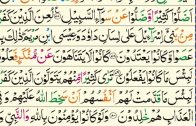 ضَلُّوا كَثِيرًا وَضَلُّوا عَن سَوَاءِ السَّبِيلِ لُعِنَ الَّذِينَ كَفَرُوا
مِن بَنِي إِسْرَائِيلَ عَلَى لِسَانِ دَاوُدَ وَعِيسَى ابْنِ مَرْيَمَ ذَلِكَ بِمَا
عَصَوا وَكَانُوا يَعْتَدُونَ كَانُوا لَا يَتَنَاهَوْنَ عَن مُنكَرٍ فَعَلُوهُ
لَبِئْسَ مَا كَانُوا يَفْعَلُونَ تَرَى كَثِيرًا مِنْهُمْ يَتَوَلَّوْنَ الَّذِينَ كَفَرُوا
لَبِئْسَ مَا قَدَّمَتْ لَهُمْ أَنفُسُهُمْ أَن سَخِطَ اللَّهُ عَلَيْهِمْ وَفِي
الْعَذَابِ هُمْ خَالِدُونَ وَلَوْ كَانُوا يُؤْمِنُونَ بِاللَّهِ وَ